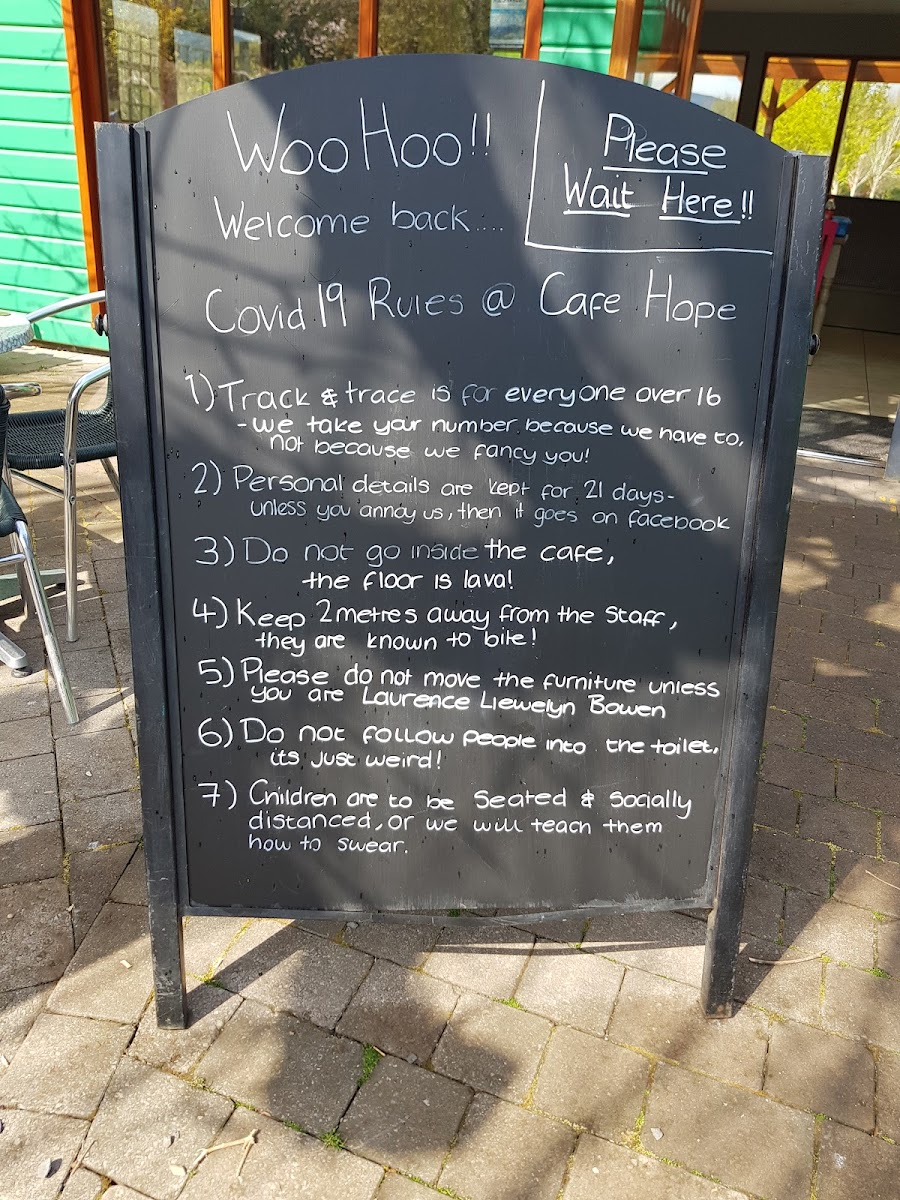 WooHoo!!
Welcome back....
Please
Wait Here!!
Covid 19 Rules @ Cafe Hope
1) Track & trace is for everyone over 16
- we take your number because we have to,
not because we fancy you!
2) Personal details are kept for 21 days-
unless you annoy us, then it goes on facebook
3) Do not go inside the cafe,
the floor is lava!
4) Keep 2metres away from the staff,
they are known to bite!
5) Please do not move the furniture unless
you are Laurence Llewelyn Bowen
6) Do not follow people into the toilet,
its just weird!
7) Children are to be seated & socially
distanced, or we will teach them
how to swear.